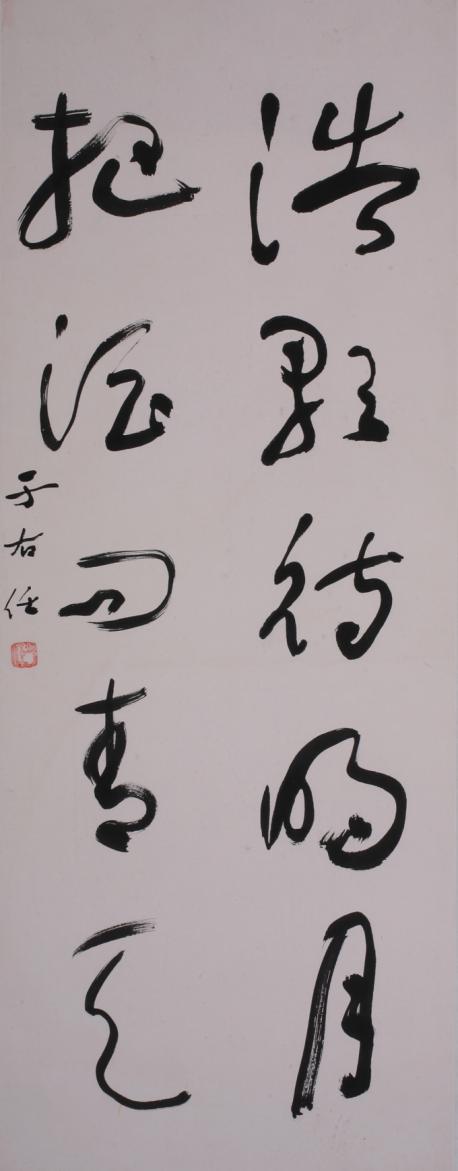 浩歌待明月
把酒問青天
于右任